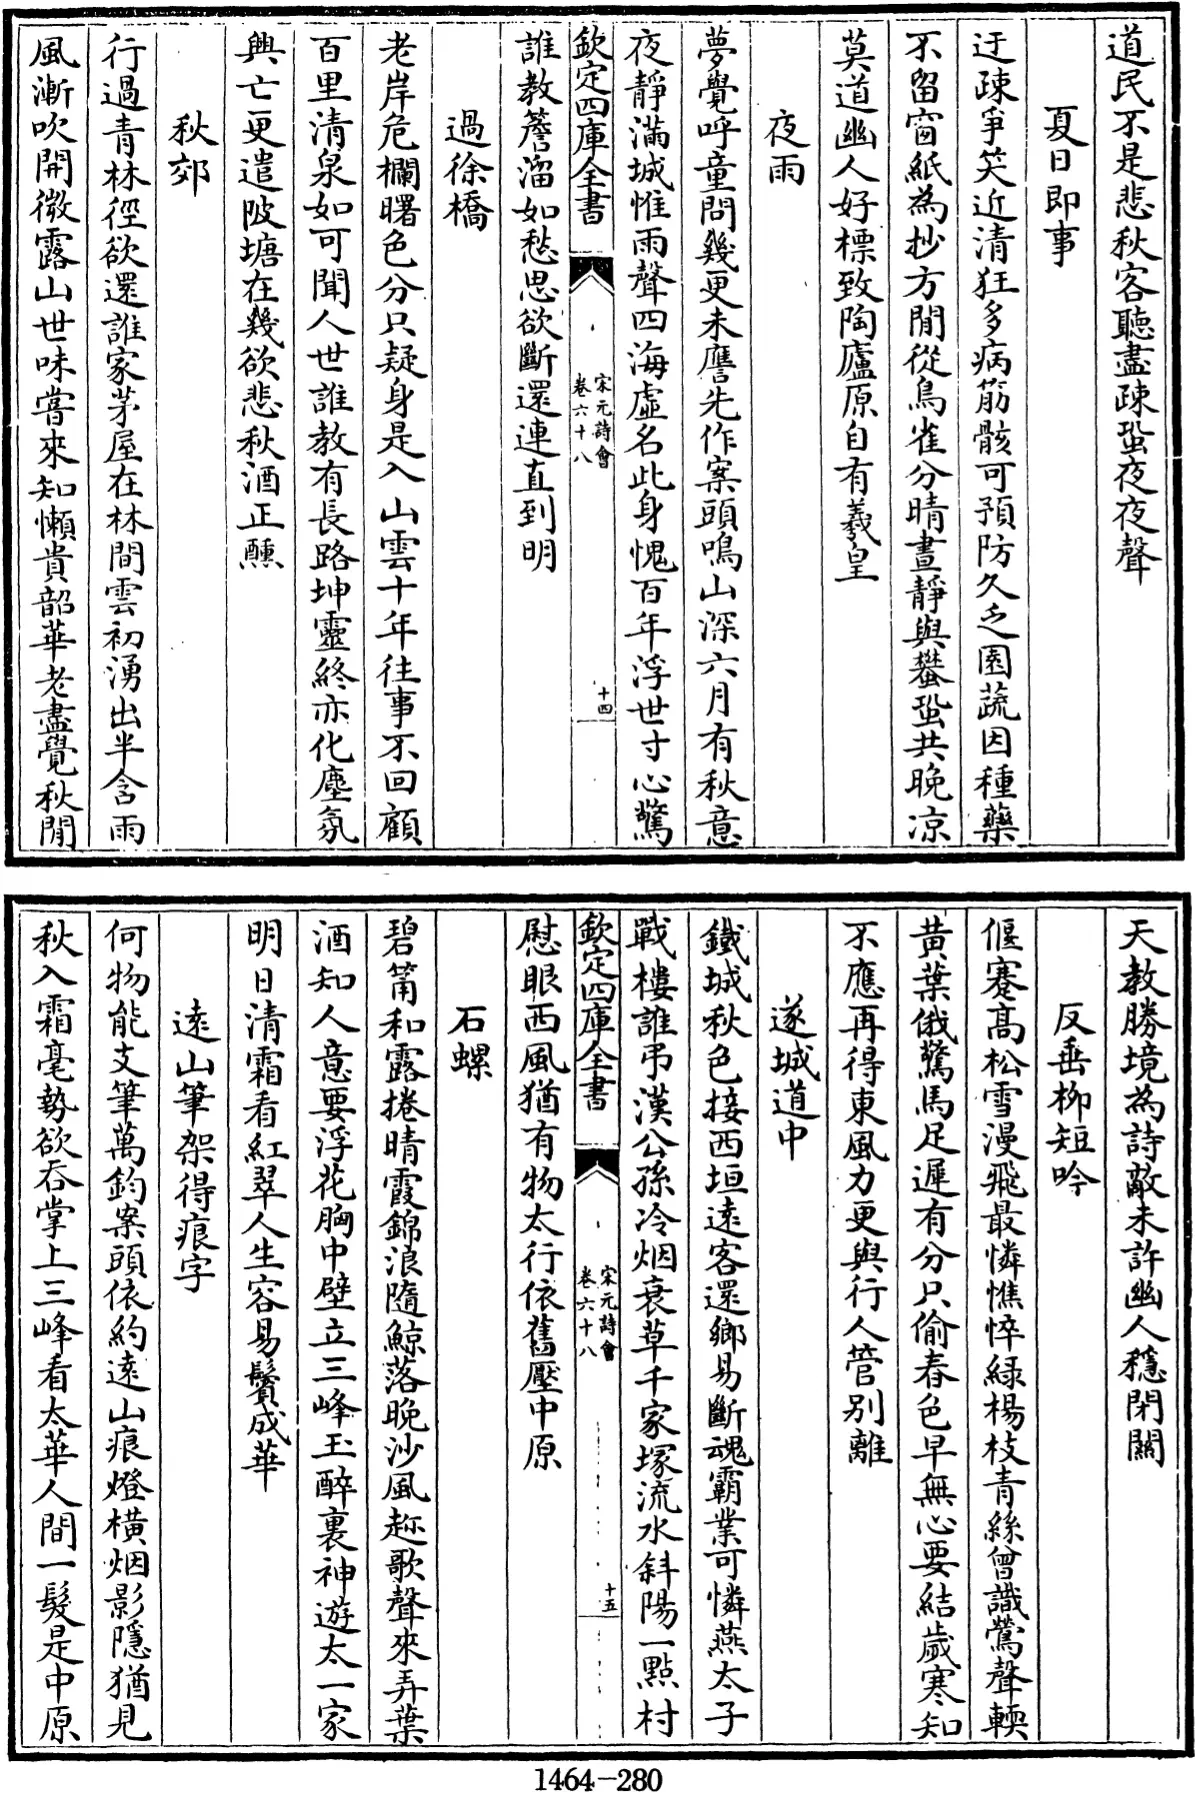 道民不是悲秋客聽盡疎蛩夜夜聲
夏日即事
迂疎爭笑近清狂多病筋骸可預防久乏園蔬因種藥
不留窗紙為抄方閒從鳥雀分晴晝靜與蠻蛩共晚凉
莫道幽人好標致陶廬原自有羲皇
夜雨
夢覺呼童問幾更未譍先作案頭鳴山深六月有秋意
夜靜滿城惟雨聲四海虛名此身愧百年浮世寸心驚
欽定四庫全書
宋元詩會
卷六十八
十四
誰教簷溜如愁思欲斷還連直到明
過徐橋
老岸危欄曙色分只疑身是入山雲十年往事不回顧
百里清泉如可聞人世誰教有長路坤靈終亦化塵氛
興亡更遣陂塘在幾欲悲秋酒正醺
秋郊
行過青林徑欲還誰家茅屋在林間雲初湧出半含雨
風漸吹開微露山世味嘗來知懶貴韶華老盡覺秋閒
天教勝境為詩敵未許幽人穩閉關
反垂柳短吟
偃蹇高松雪漫飛最憐憔悴綠楊枝青絲曾識鶯聲輭
黄葉俄驚馬足遲有分只偷春色早無心要結歲寒知
不應再得東風力更與行人管別離
遂城道中
鐵城秋色接西垣遠客還鄉易斷魂霸業可憐燕太子
戰樓誰弔漢公孫冷烟衰草千家塚流水斜陽一點村
欽定四庫全書
宋元詩會
卷六十八
十五
慰眼西風猶有物太行依舊壓中原
石螺
碧筩和露捲晴霞錦浪隨鯨落晚沙風趂歌聲來弄葉
酒知人意要浮花胸中壁立三峰玉醉裏神遊太一家
明日清霜看紅翠人生容易鬢成華
遠山筆架得痕字
何物能支筆萬鈞案頭依約遠山痕燈橫烟影隱猶見
秋入霜毫勢欲吞掌上三峰看太華人間一髮是中原
1464-280